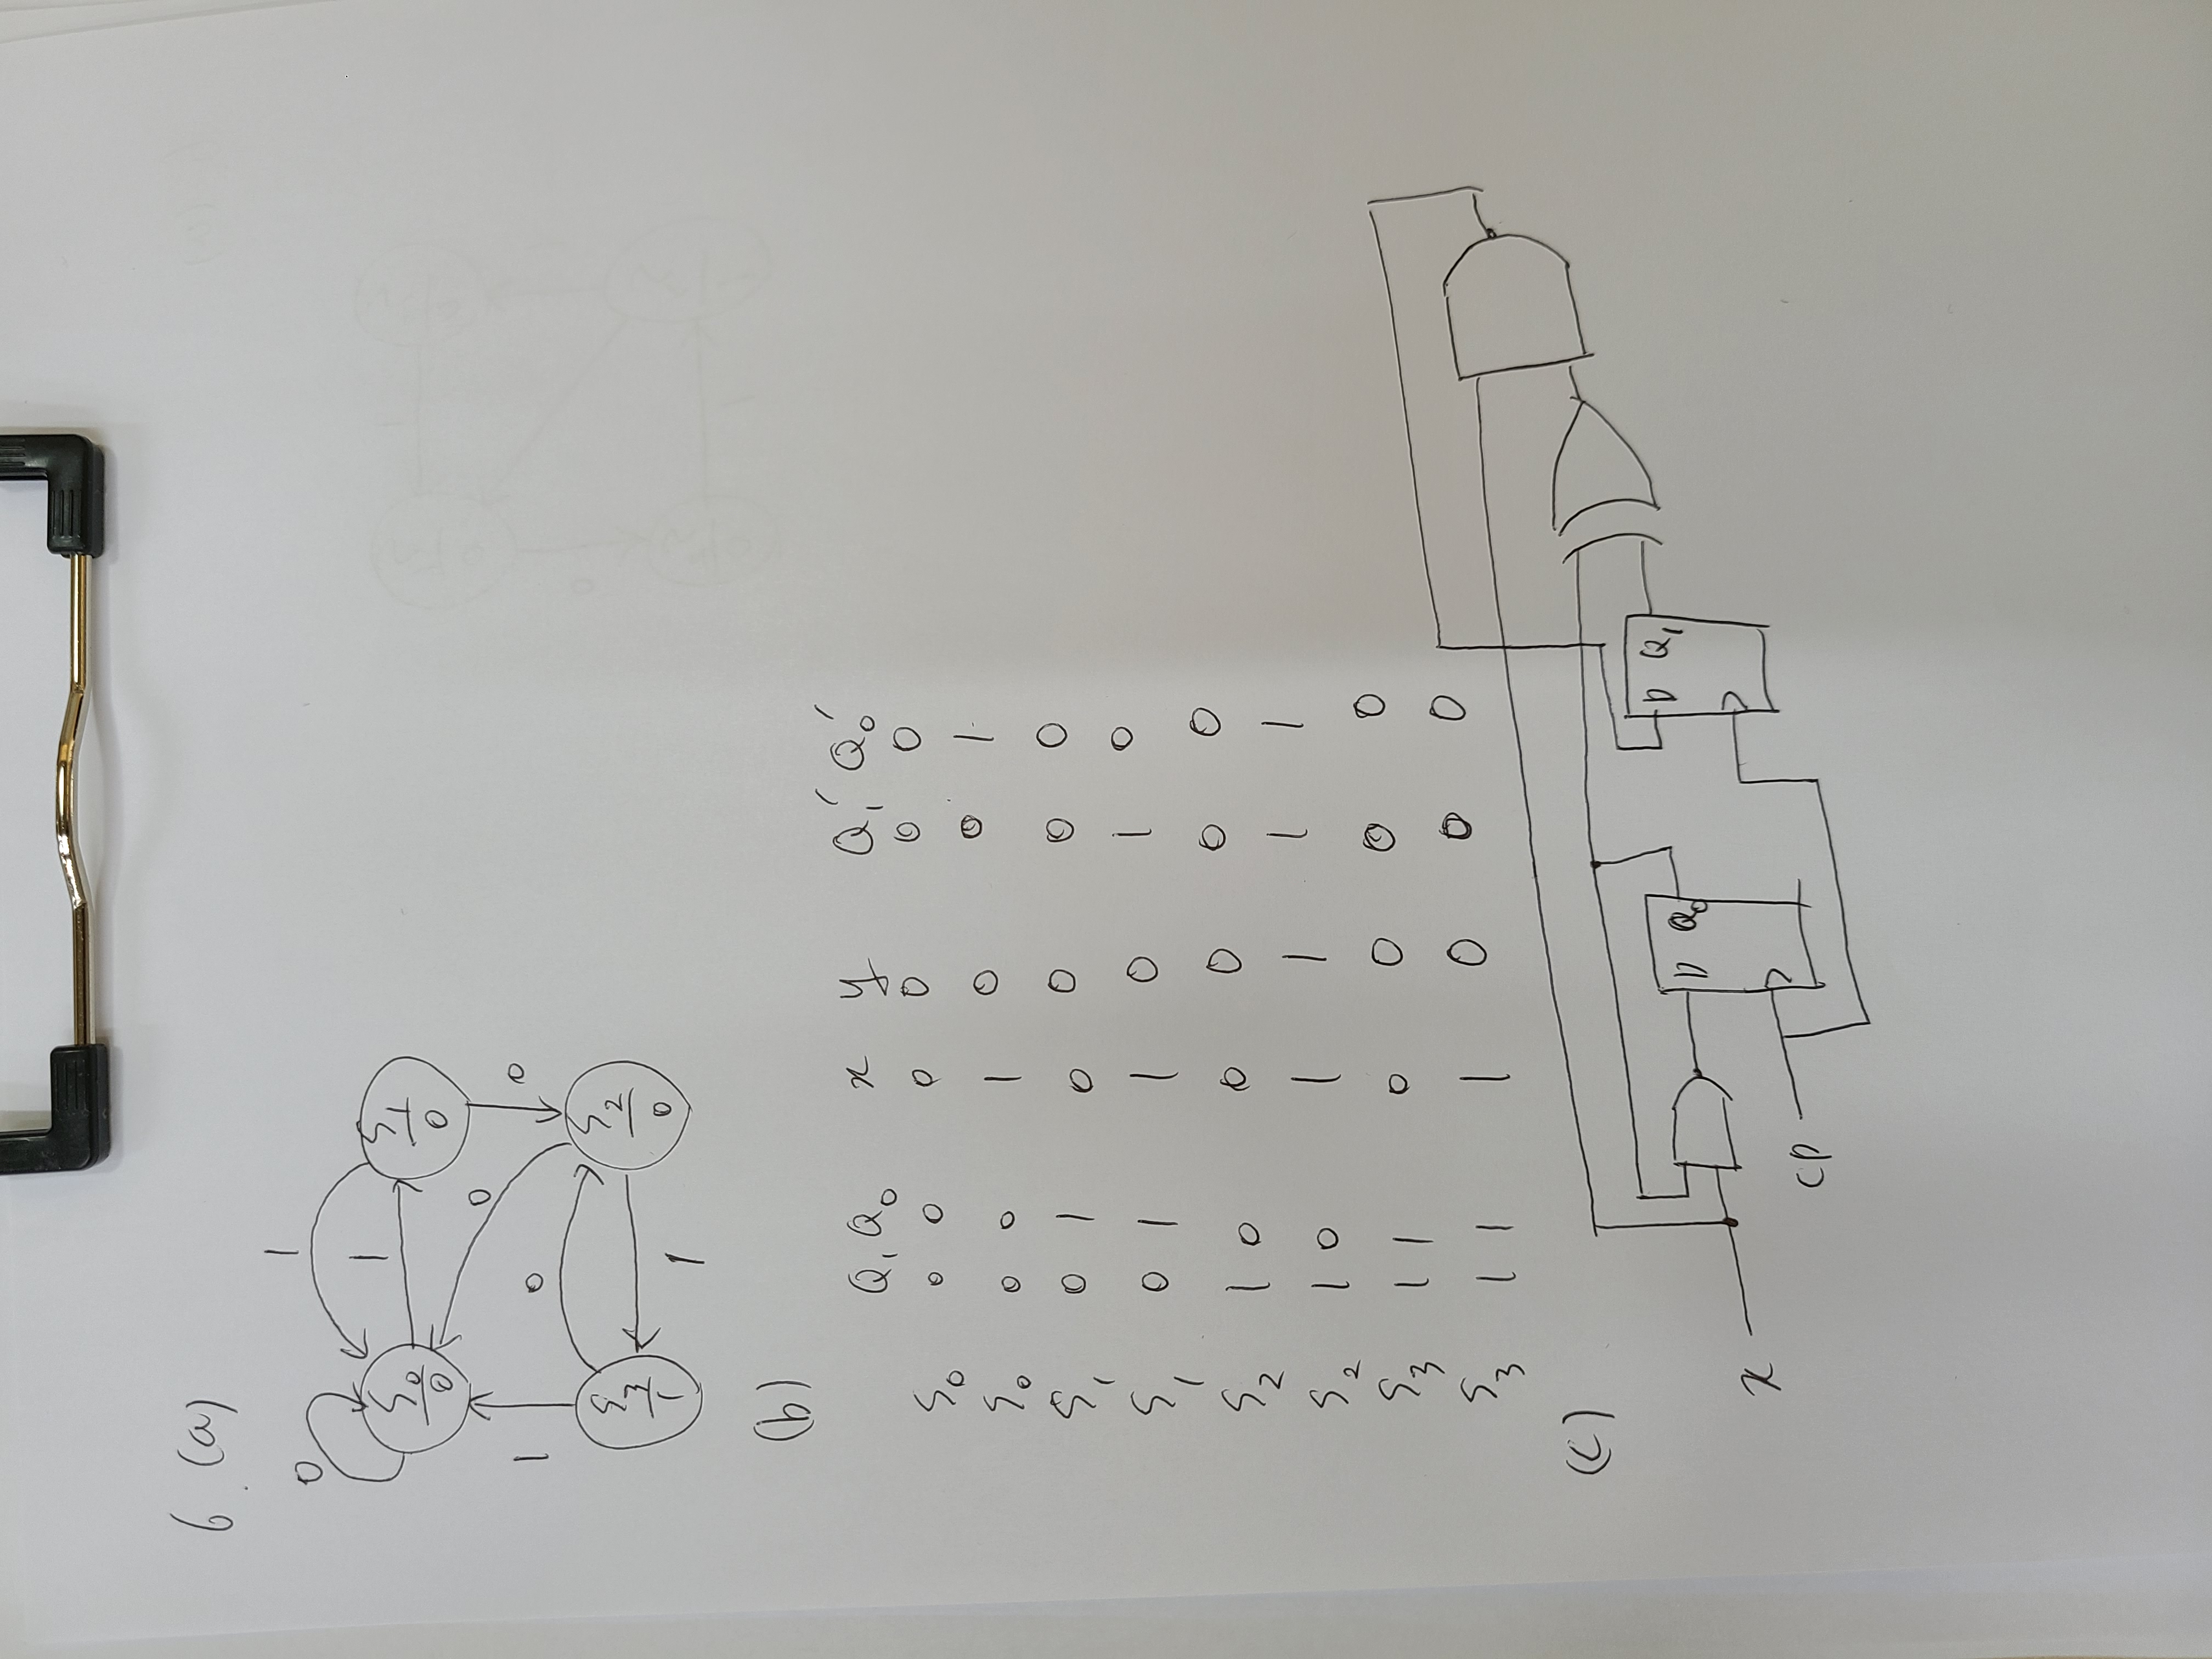 6 (a)
1
0
1
S0/0
S1/0
0
0
1
0
S3/1
S2/0
1
(b)
Q1 Q0 x y Q1' Q0'
S0 0 0 0 0 0 0
S0 0 0 1 0 0 1
S1 0 1 0 0 0 0
S1 0 1 1 0 1 0
S2 1 0 0 0 0 0
S2 1 0 1 1 1 1
S3 1 1 0 0 0 0
S3 1 1 1 0 0 0
(c)
D Q1
D Q0
x
CP